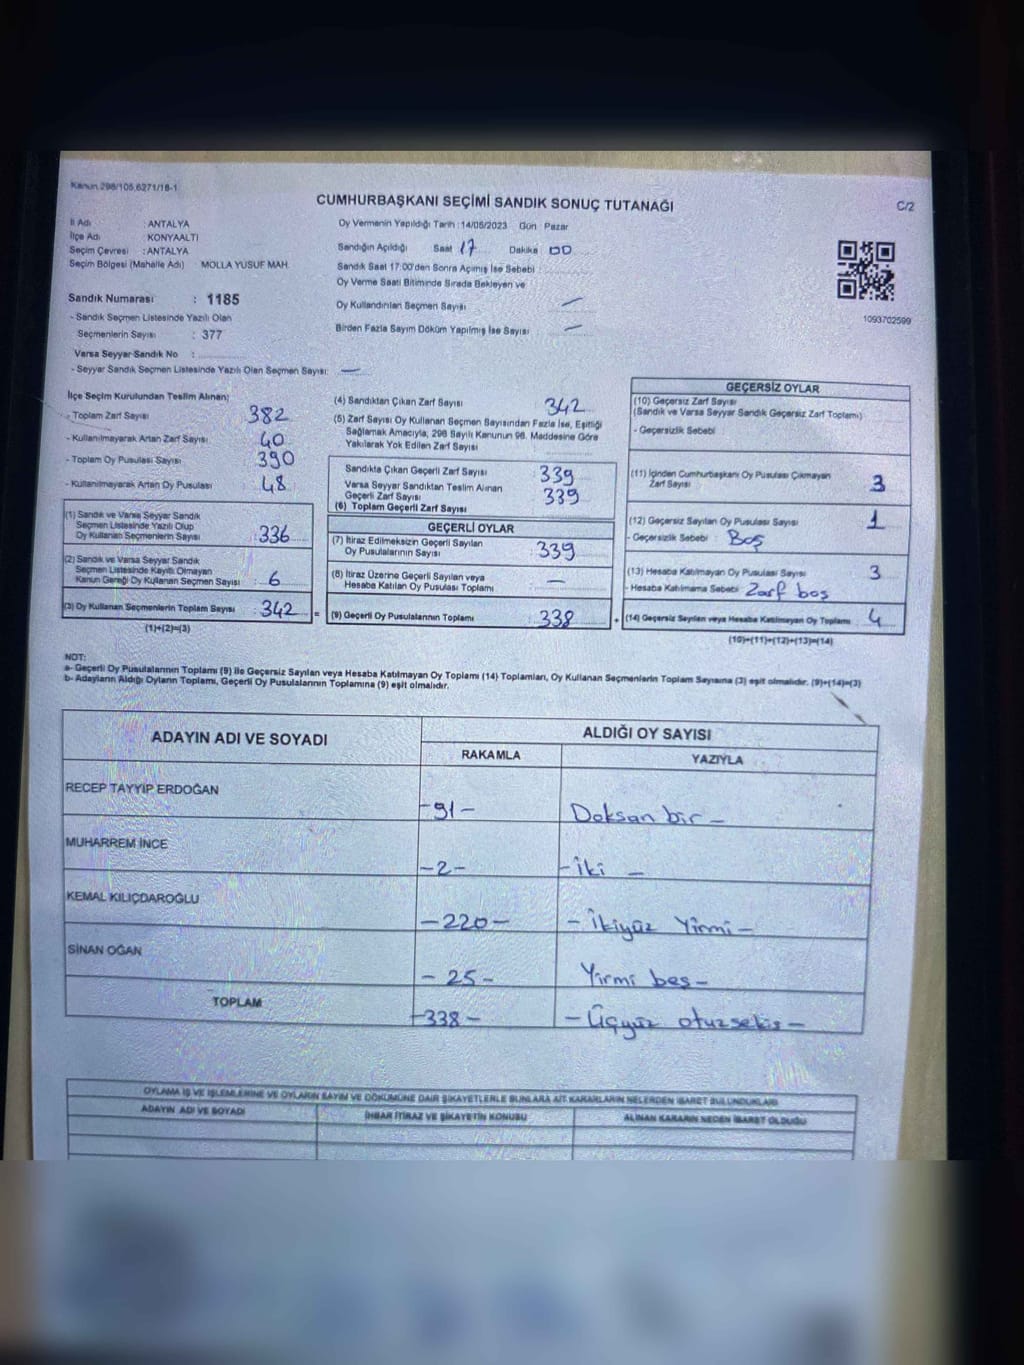 Kanun.298/105,6271/18-1
CUMHURBAŞKANI SEÇİMİ SANDIK SONUÇ TUTANAĞI
C/2
İl Adı : ANTALYA
İlçe Adı : KONYAALTI
Seçim Çevresi : ANTALYA
Seçim Bölgesi (Mahalle Adı) MOLLA YUSUF MAH.
Oy Vermenin Yapıldığı Tarih :14/05/2023 Gün Pazar
Sandığın Açıldığı Saat 17 Dakika 00
Sandık Saat 17:00'den Sonra Açımış İse Sebebi :
Oy Verme Saati Bitiminde Sırada Bekleyen ve
Oy Kullandırılan Seçmen Sayısı —
Birden Fazla Sayım Döküm Yapılmış İse Sayısı —
1093702599
Sandık Numarası : 1185
- Sandık Seçmen Listesinde Yazılı Olan
Seçmenlerin Sayısı : 377
Varsa Seyyar Sandık No :
- Seyyar Sandık Seçmen Listesinde Yazılı Olan Seçmen Sayısı: —
İlçe Seçim Kurulundan Teslim Alınan;
- Toplam Zarf Sayısı 382
- Kullanılmayarak Artan Zarf Sayısı 40
- Toplam Oy Pusulası Sayısı 390
- Kullanılmayarak Artan Oy Pusulası : 48
(1) Sandık ve Varsa Seyyar Sandık
Seçmen Listesinde Yazılı Olup
Oy Kullanan Seçmenlerin Sayısı :336
(2) Sandık ve Varsa Seyyar Sandık
Seçmen Listesinde Kayıtlı Olmayan
Kanun Gereği Oy Kullanan Seçmen Sayısı : 6
(3) Oy Kullanan Seçmenlerin Toplam Sayısı : 342 =
(1)+(2)=(3)
(4) Sandıktan Çıkan Zarf Sayısı 342
(5) Zarf Sayısı Oy Kullanan Seçmen Sayısından Fazla İse, Eşitliği
Sağlamak Amacıyla, 298 Sayılı Kanunun 98. Maddesine Göre
Yakılarak Yok Edilen Zarf Sayısı
Sandıkta Çıkan Geçerli Zarf Sayısı : 339
Varsa Seyyar Sandıktan Teslim Alınan
Geçerli Zarf Sayısı 339
(6) Toplam Geçerli Zarf Sayısı
GEÇERLİ OYLAR
(7) İtiraz Edilmeksizin Geçerli Sayılan
Oy Pusulalarının Sayısı : 339
(8) İtiraz Üzerine Geçerli Sayılan veya
Hesaba Katılan Oy Pusulası Toplamı —
(9) Geçerli Oy Pusulalarının Toplamı : 338 +
GEÇERSİZ OYLAR
(10) Geçersiz Zarf Sayısı
(Sandık ve Varsa Seyyar Sandık Geçersiz Zarf Toplamı)
- Geçersizlik Sebebi
(11) İçinden Cumhurbaşkanı Oy Pusulası Çıkmayan
Zarf Sayısı 3
(12) Geçersiz Sayılan Oy Pusulası Sayısı 1
- Geçersizlik Sebebi : Boş
(13) Hesaba Katılmayan Oy Pusulası Sayısı 3
- Hesaba Katılmama Sebebi Zarf boş
(14) Geçersiz Sayılan veya Hesaba Katılmayan Oy Toplamı 4
(10)+(11)+(12)+(13)=(14)
NOT:
a- Geçerli Oy Pusulalarının Toplamı (9) ile Geçersiz Sayılan veya Hesaba Katılmayan Oy Toplamı (14) Toplamları, Oy Kullanan Seçmenlerin Toplam Sayısına (3) eşit olmalıdır. (9)+(14)=(3)
b- Adayların Aldığı Oyların Toplamı, Geçerli Oy Pusulalarının Toplamına (9) eşit olmalıdır.
ADAYIN ADI VE SOYADI
ALDIĞI OY SAYISI
RAKAMLA YAZIYLA
RECEP TAYYİP ERDOĞAN -91- Doksan bir -
MUHARREM İNCE -2- -İki -
KEMAL KILIÇDAROĞLU -220- - İkiyüz Yirmi -
SİNAN OĞAN - 25 - Yirmi beş -
TOPLAM -338 - - Üçyüz otuzsekiz -
OYLAMA İŞ VE İŞLEMLERİNE VE OYLARIN SAYIM VE DÖKÜMÜNE DAİR ŞİKAYETLERLE BUNLARA AİT KARARLARIN NELERDEN İBARET BULUNDUKLARI
ADAYIN ADI VE SOYADI İHBAR İTİRAZ VE ŞİKAYETİN KONUSU ALINAN KARARIN NEDEN İBARET OLDUĞU